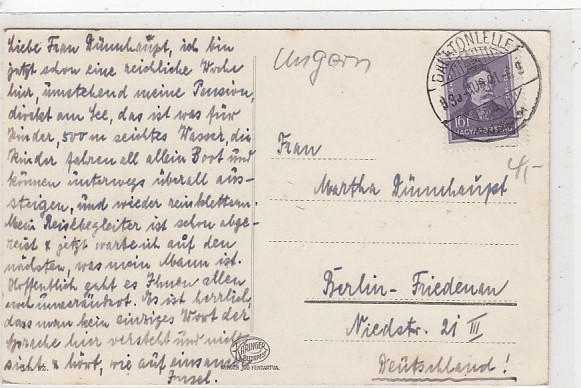 Liebe Frau Dünnhaupt, ich bin
jetzt schon eine reichliche Woche
hier, umstehend meine Pension,
direkt am See, das ist was für
Kinder, 500 m seichtes Wasser, die
Kinder fahren all allein Boot und
können unterwegs überall aus-
steigen, und wieder reinklettern.
Mein Reisebegleiter ist schon abge-
reist & jetzt warte ich auf den
nächsten, was mein Mann ist.
Hoffentlich geht es Ihnen allen
unverändert. Es ist herrlich,
dass man kein einziges Wort der
Sprache hier versteht und nicht
sieht & hört, wie auf einsamer
Insel.
Ungarn
BALATONLELLE
10f
MAGYARORSZÁG
4,-
Frau
Martha Dünnhaupt
Berlin-Friedenau
Niedstr. 21 III
Deutschland!
KARINGER
BUDAPEST